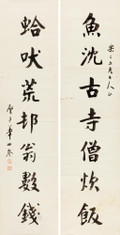 魚沈古寺僧炊飯
蛤吠荒邨翁數錢